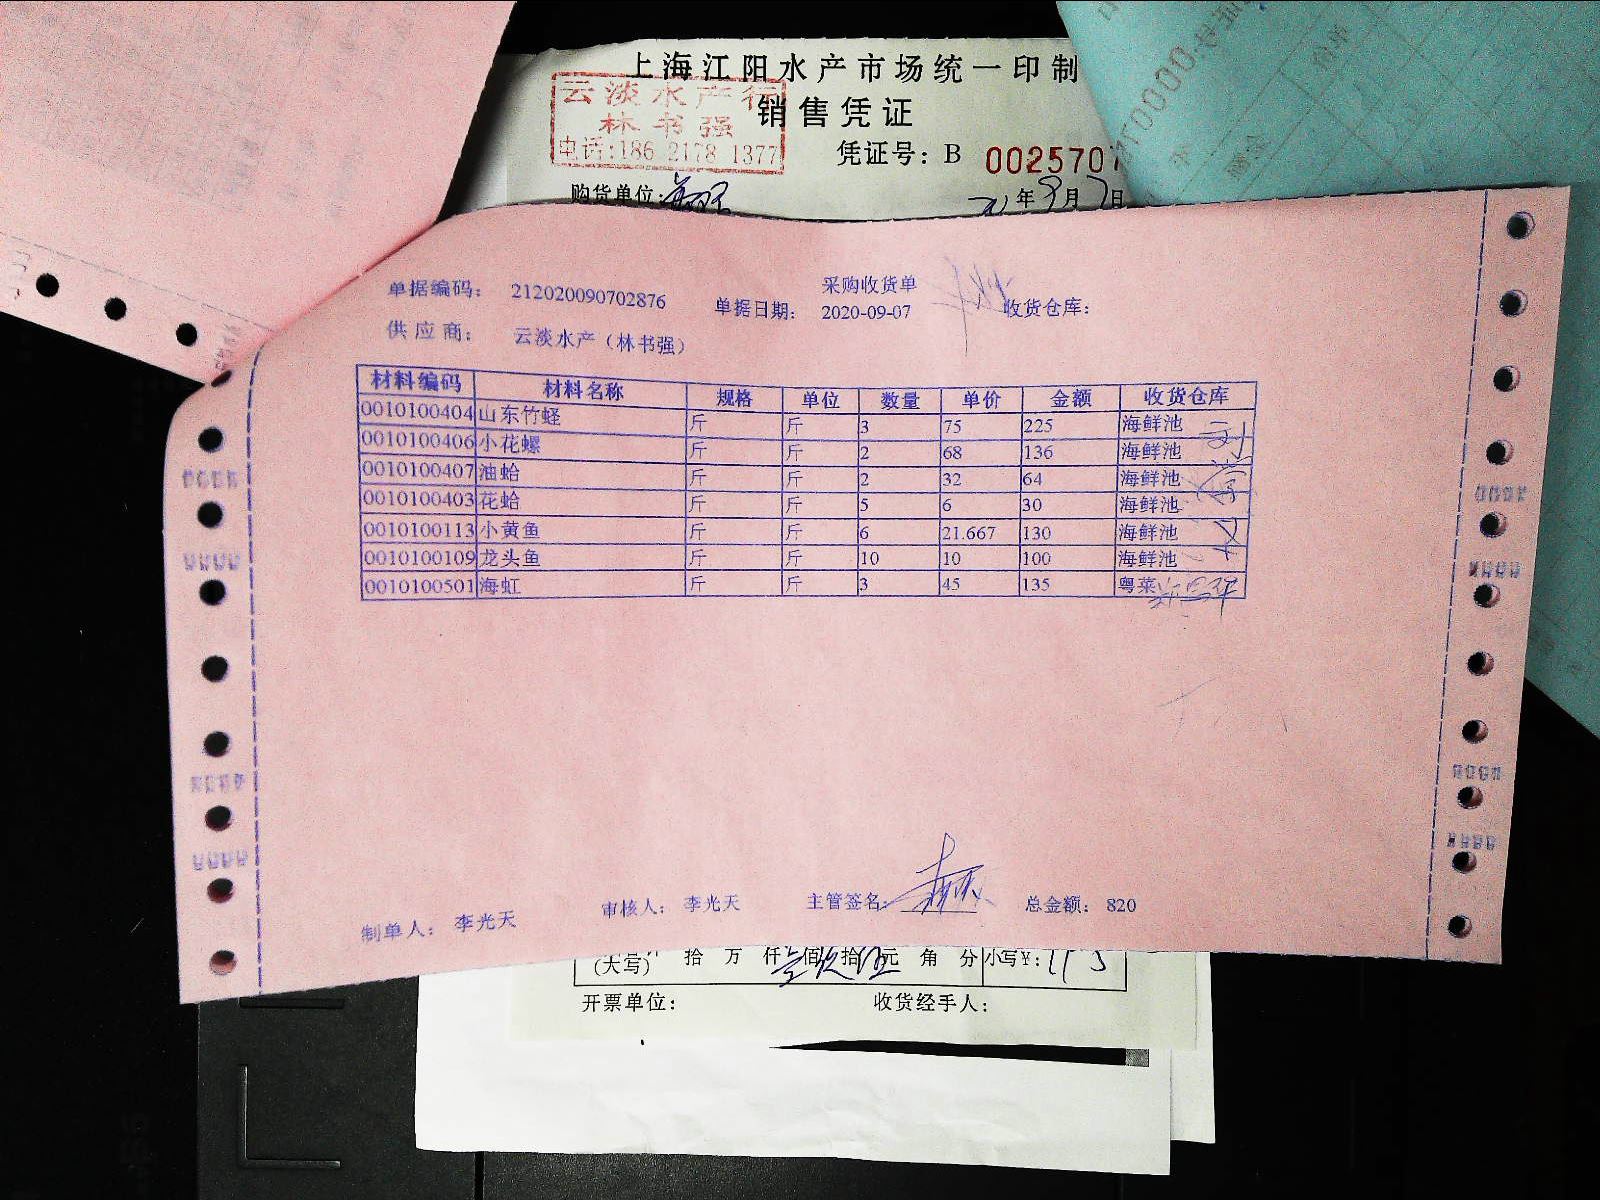 上海江阳水产市场统一印制
云淡水产行
销售凭证
林书强
电话:186 2178 1377
凭证号: B 0025707
购货单位:
年9月7日
采购收货单
单据编码: 212020090702876 单据日期: 2020-09-07 收货仓库:
供应商: 云淡水产（林书强）
材料编码 材料名称 规格 单位 数量 单价 金额 收货仓库
0010100404 山东竹蛏 斤 斤 3 75 225 海鲜池
0010100406 小花螺 斤 斤 2 68 136 海鲜池
0010100407 油蛤 斤 斤 2 32 64 海鲜池
0010100403 花蛤 斤 斤 5 6 30 海鲜池
0010100113 小黄鱼 斤 斤 6 21.667 130 海鲜池
0010100109 龙头鱼 斤 斤 10 10 100 海鲜池
0010100501 海虹 斤 斤 3 45 135 粤菜
制单人: 李光天 审核人: 李光天 主管签名: 总金额: 820
(大写) 拾 万 仟 佰 拾 元 角 分 小写¥:
开票单位: 收货经手人: